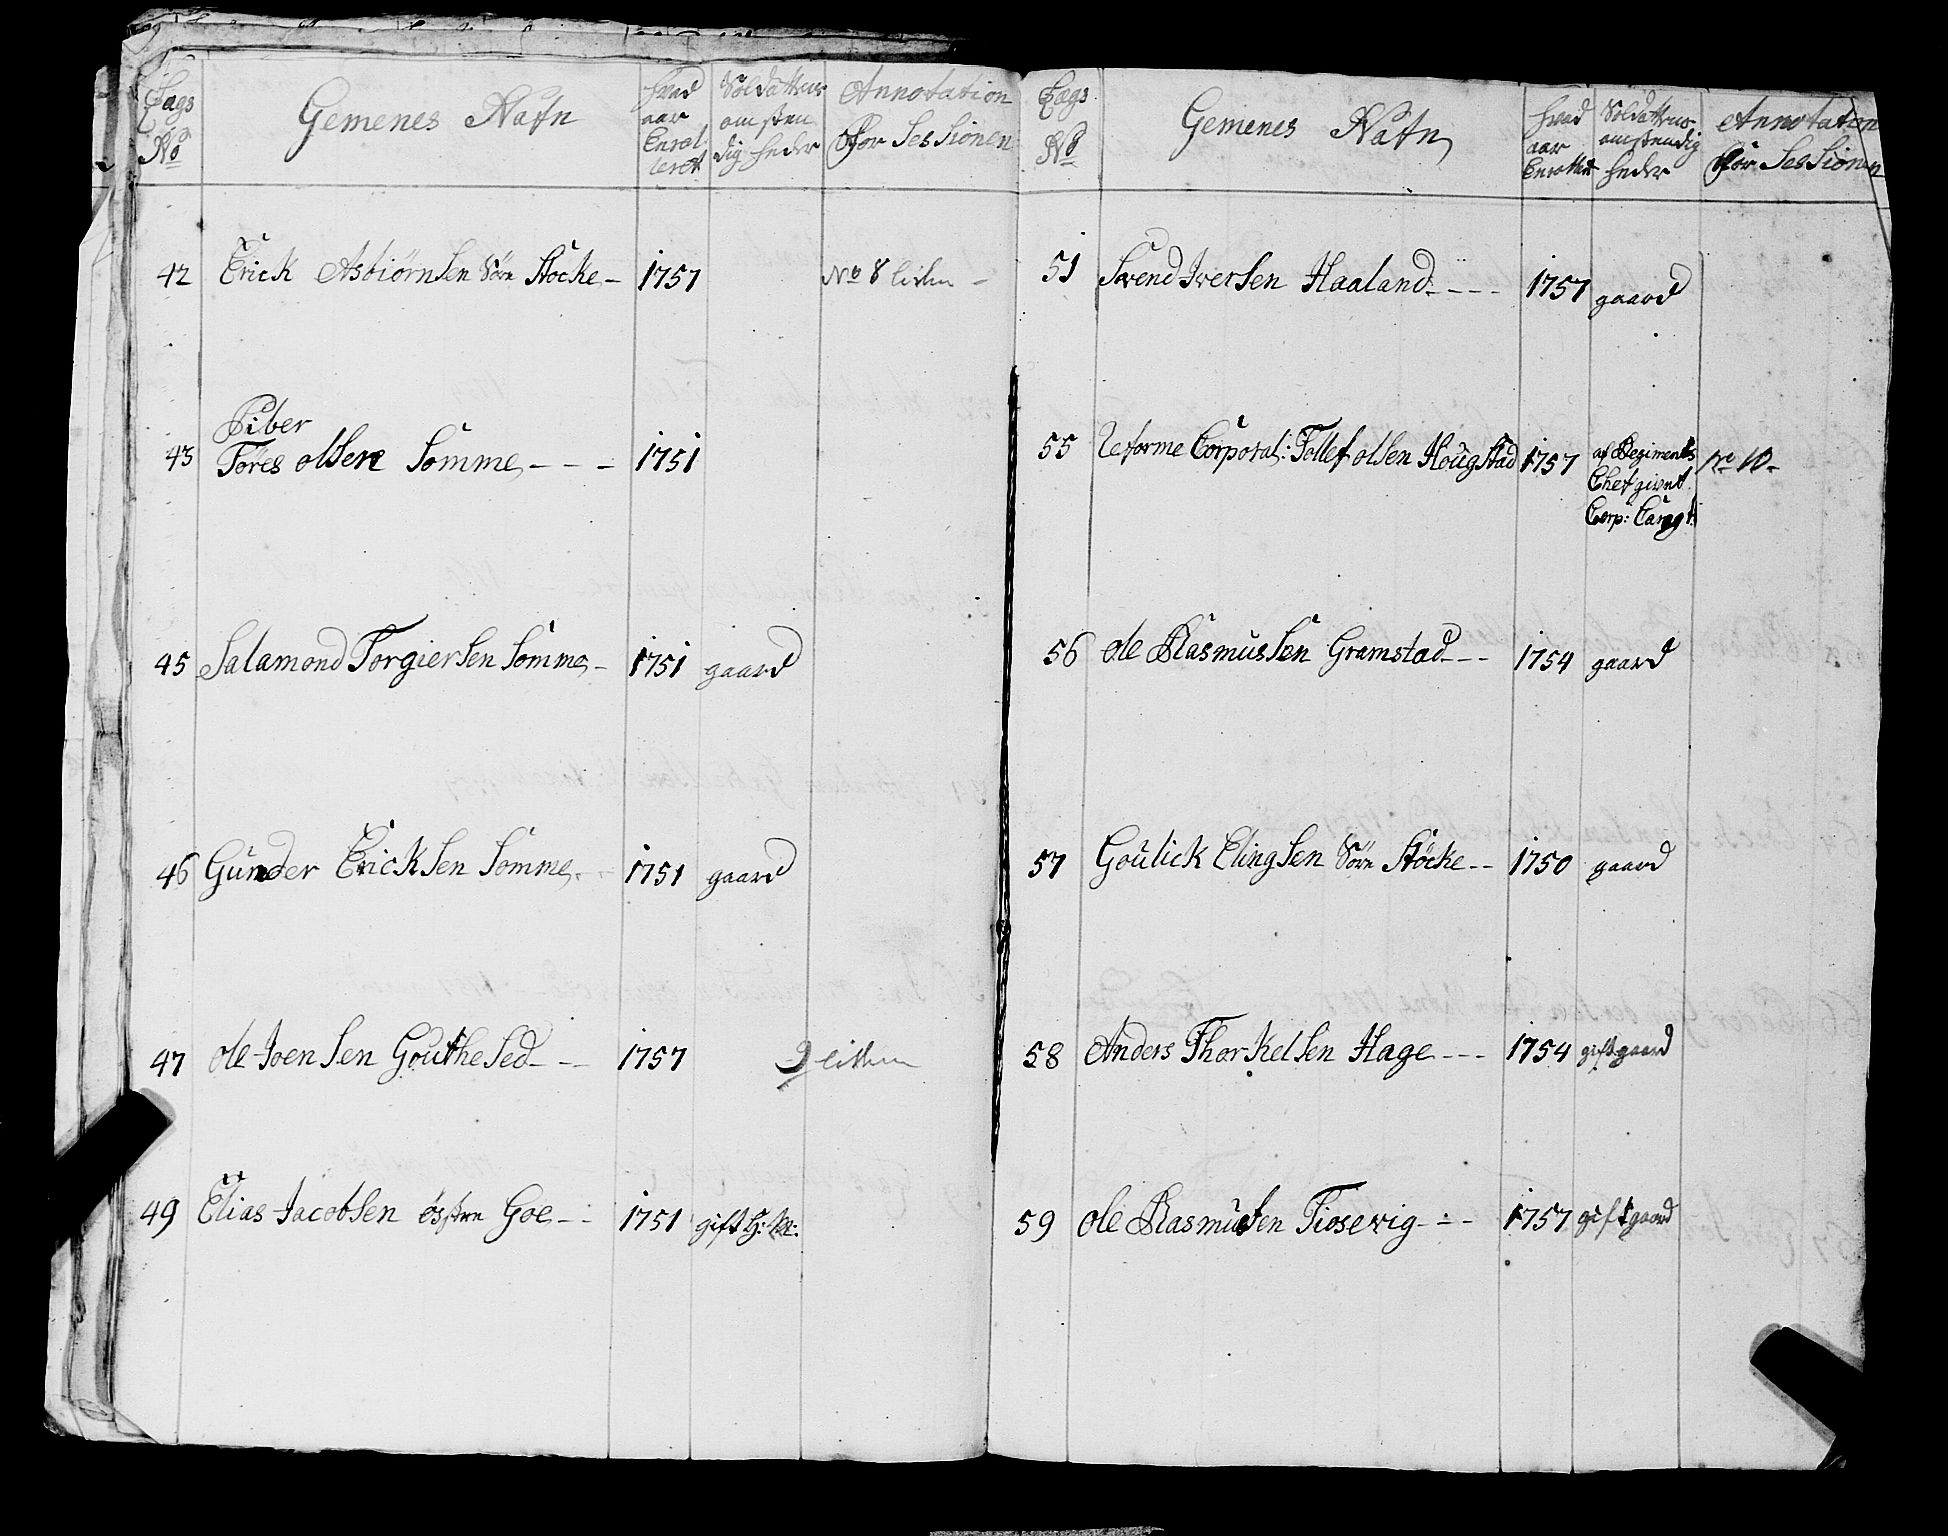 Lægs No
Gemenes Nafn
hvad aar Enrolleret
Soldatens omstendigheder
Annotation for Sessionen
42 Erick Asbiørnsen Søre Stocke - 1757 No 8 liden -
Piber
43 Töres olsen Somme - - - 1751
45 Salamond Torgiersen Somme - 1751 gaard
46 Gunder Ericksen Somme - 1751 gaard
47 ole Joensen Gouthesed - - 1757 9 liden
49 Elias Jacobsen östre Goe - - 1751 gift
Lægs No
Gemenes Nafn
hvad aar Enrolleret
Soldatens omstendigheder
Annotation for Sessionen
51 Svend Iversen Haaland - - - 1757 gaard
55 Reforme Corporal: Tollef olsen Hougstad 1757 af Regiments No 10 -
Chef givet
Corp: Caragt:
56 ole Rasmussen Gramstad - - - 1754 gaard
57 Goulick Elingsen Søre Stöcke - - 1750 gaard
58 Anders Thorkelsen Hage - - - 1754 gift gaard
59 ole Rasmusen Tiosevig - - - 1757 gift gaard